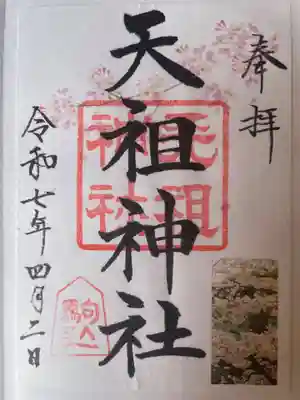 奉拝
天祖神社
天祖
神社
令和七年四月二日